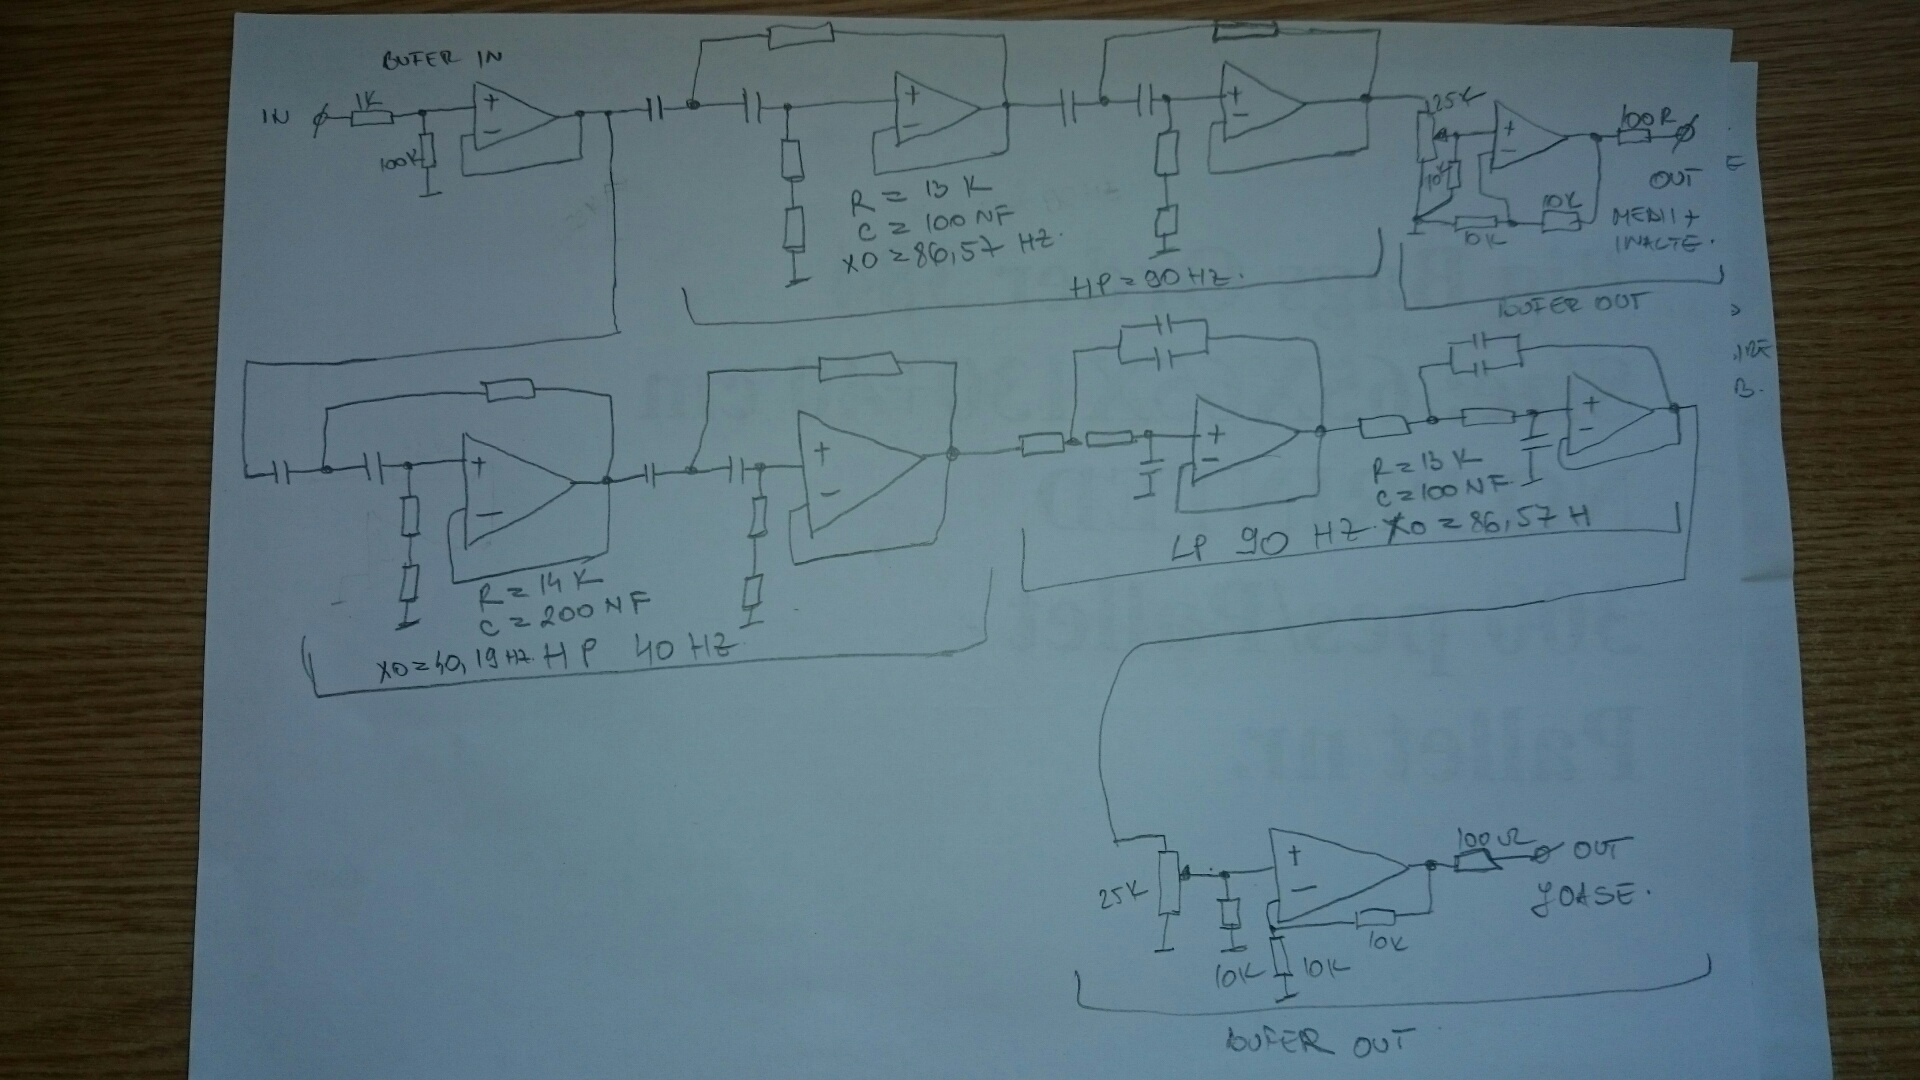 BUFER IN
IN
1K
100K
R = 13 K
C = 100 NF
XO = 86,57 HZ.
HP = 90 HZ.
25K
10K
10K
10K
100R
OUT
MEDII +
INALTE.
BUFER OUT
R = 14 K
C = 200 NF
XO = 40,19 HZ. HP 40 HZ
R = 13 K
C = 100 NF
LP 90 HZ. XO = 86,57 H
25K
10K
10K
10K
100 Ω
OUT
JOASE.
BUFER OUT
Pallet nr.